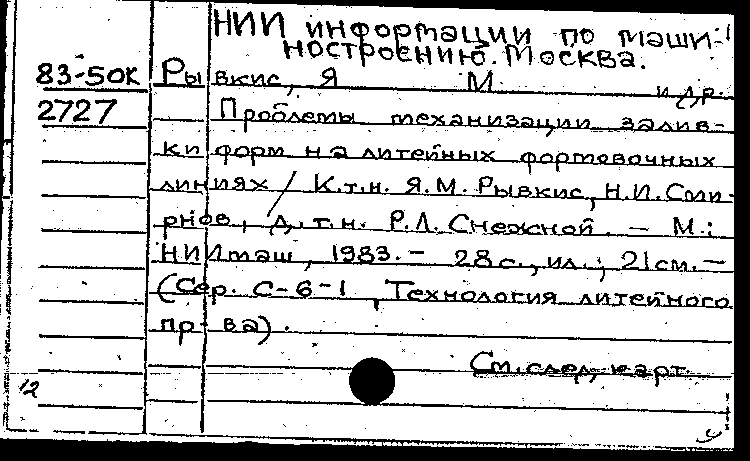 НИИ информации по маши-
ностроению. Москва.
83-50К Рывкис, Я М и др.
2727 Проблемы механизации залив-
ки форм на литейных формовочных
линиях / К.т.н. Я.М. Рывкис, Н.И. Сми-
рнов, д.т.н. Р.Л. Снежной. — М.:
НИИмаш, 1983. – 28 с., ил.; 21 см. —
(Сер. С-6-1, Технология литейного
пр-ва).
См. след. карт.
12